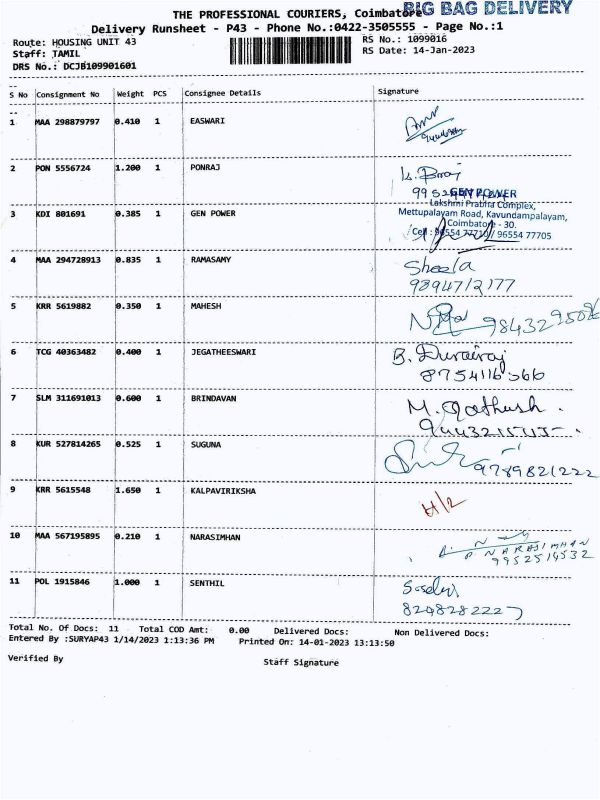 THE PROFESSIONAL COURIERS, Coimbatore BIG BAG DELIVERY
Delivery Runsheet - P43 - Phone No.:0422-3505555 - Page No.:1
Route: HOUSING UNIT 43 RS No.: 1099016
Staff: TAMIL RS Date: 14-Jan-2023
DRS No.: DCJB109901601
S No Consignment No Weight PCS Consignee Details Signature
1 MAA 298879797 0.410 1 EASWARI
2 PON 5556724 1.200 1 PONRAJ
3 KDI 801691 0.385 1 GEN POWER
GEN POWER
Lakshmi Prabha Complex,
Mettupalayam Road, Kavundampalayam,
Coimbatore - 30.
Cell : 96554 77710 / 96554 77705
4 MAA 294728913 0.835 1 RAMASAMY Sheela
9894712177
5 KRR 5619882 0.350 1 MAHESH
6 TCG 40363482 0.400 1 JEGATHEESWARI B. Durairaj
7 SLM 311691013 0.600 1 BRINDAVAN
8 KUR 527814265 0.525 1 SUGUNA
9789821222
9 KRR 5615548 1.650 1 KALPAVIRIKSHA H/2
10 MAA 567195895 0.210 1 NARASIMHAN
NARASIMHAN
9952514532
11 POL 1915846 1.000 1 SENTHIL
8248282227
Total No. Of Docs: 11 Total COD Amt: 0.00 Delivered Docs: Non Delivered Docs:
Entered By :SURYAP43 1/14/2023 1:13:36 PM Printed On: 14-01-2023 13:13:50
Verified By Staff Signature